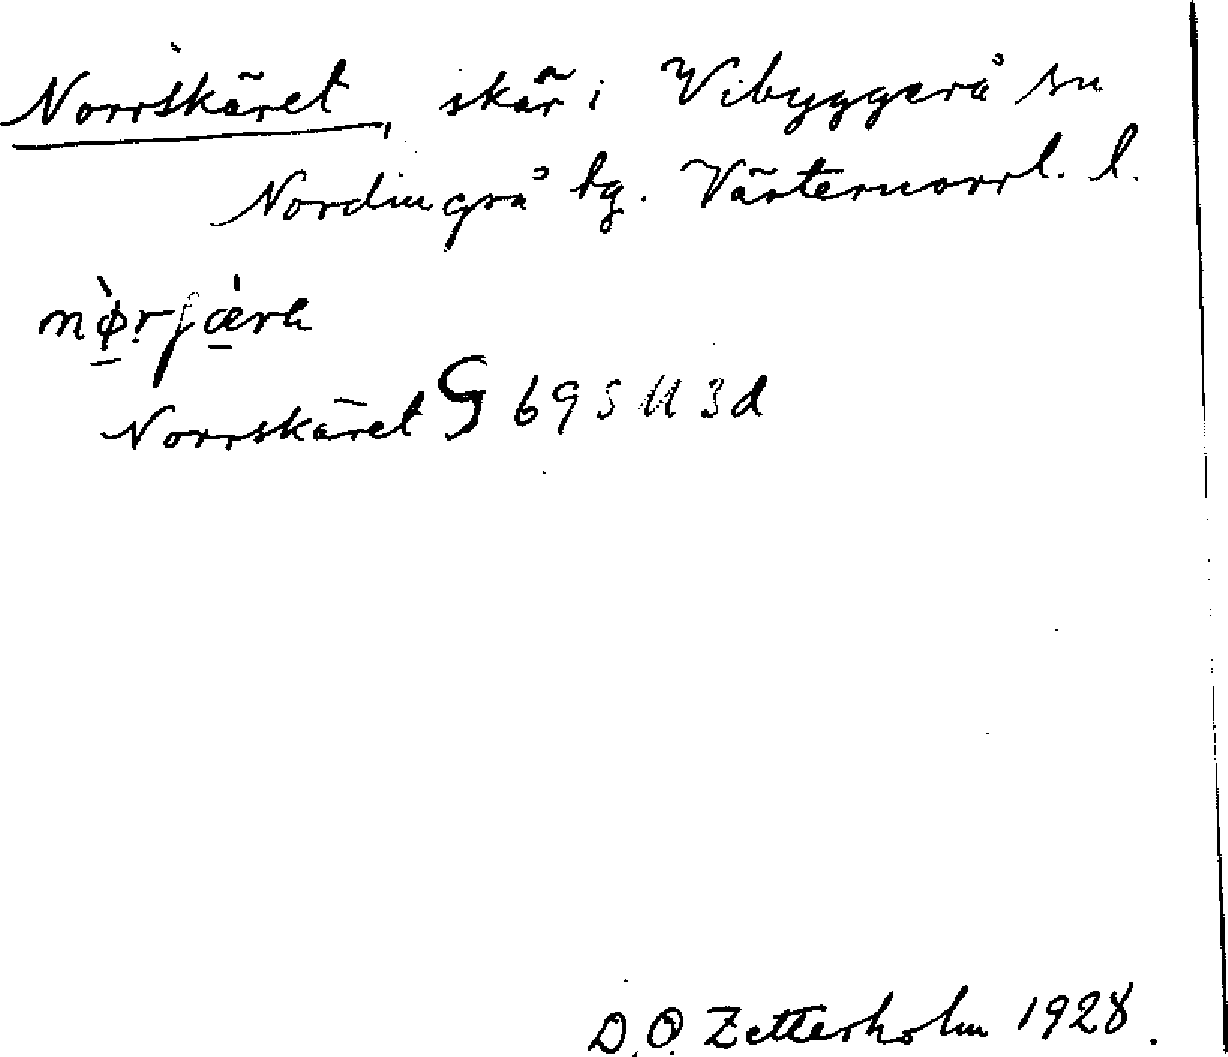 Norrskäret, skär i Vibyggerå sn
Nordingrå tg. Västernorrl. l.
nø̀rʃæ̀rɑ
Norrskäret G 69 S U 3d
D.O. Zetterholm 1928.